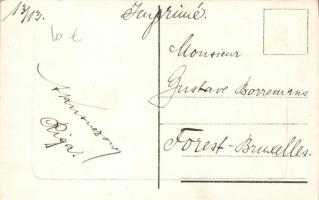 13/13.
Imprimé.
Monsieur
Gustave Borremans
Forest-Bruxelles.
Riga.